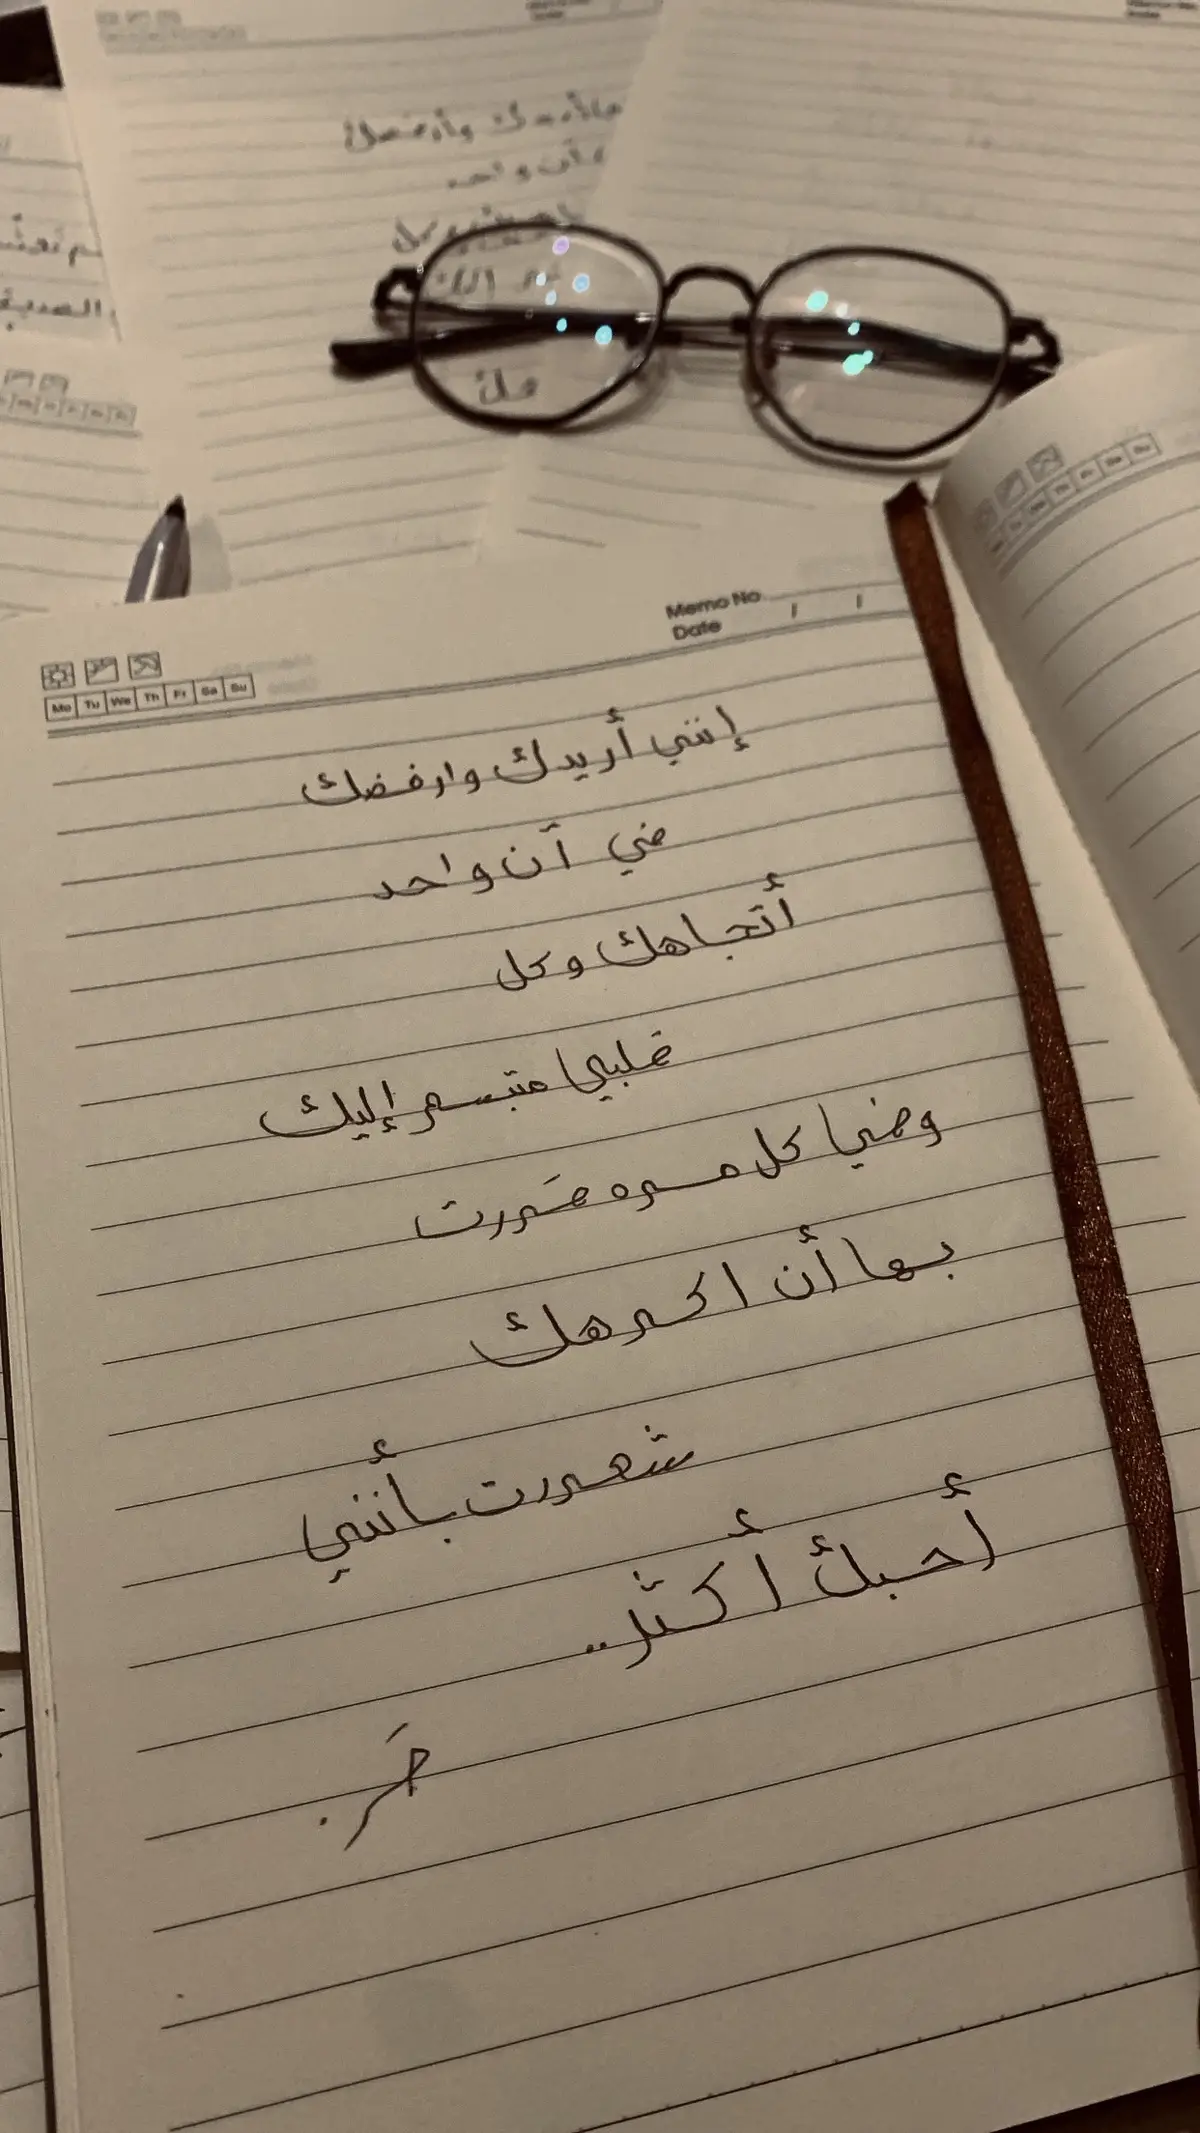 مأريدك وأرفضك
آن واحد
الصديقة
Memo No
Date / /
Mo Tu We Th Fr Sa Su
إنني أريدك وارفضك
في آن واحد
أتجاهك وكل
قلبي متبسم إليك
وفي كل مره قررت
بها أن اكرهك
شعرت بأنني
أحبك أكثر..